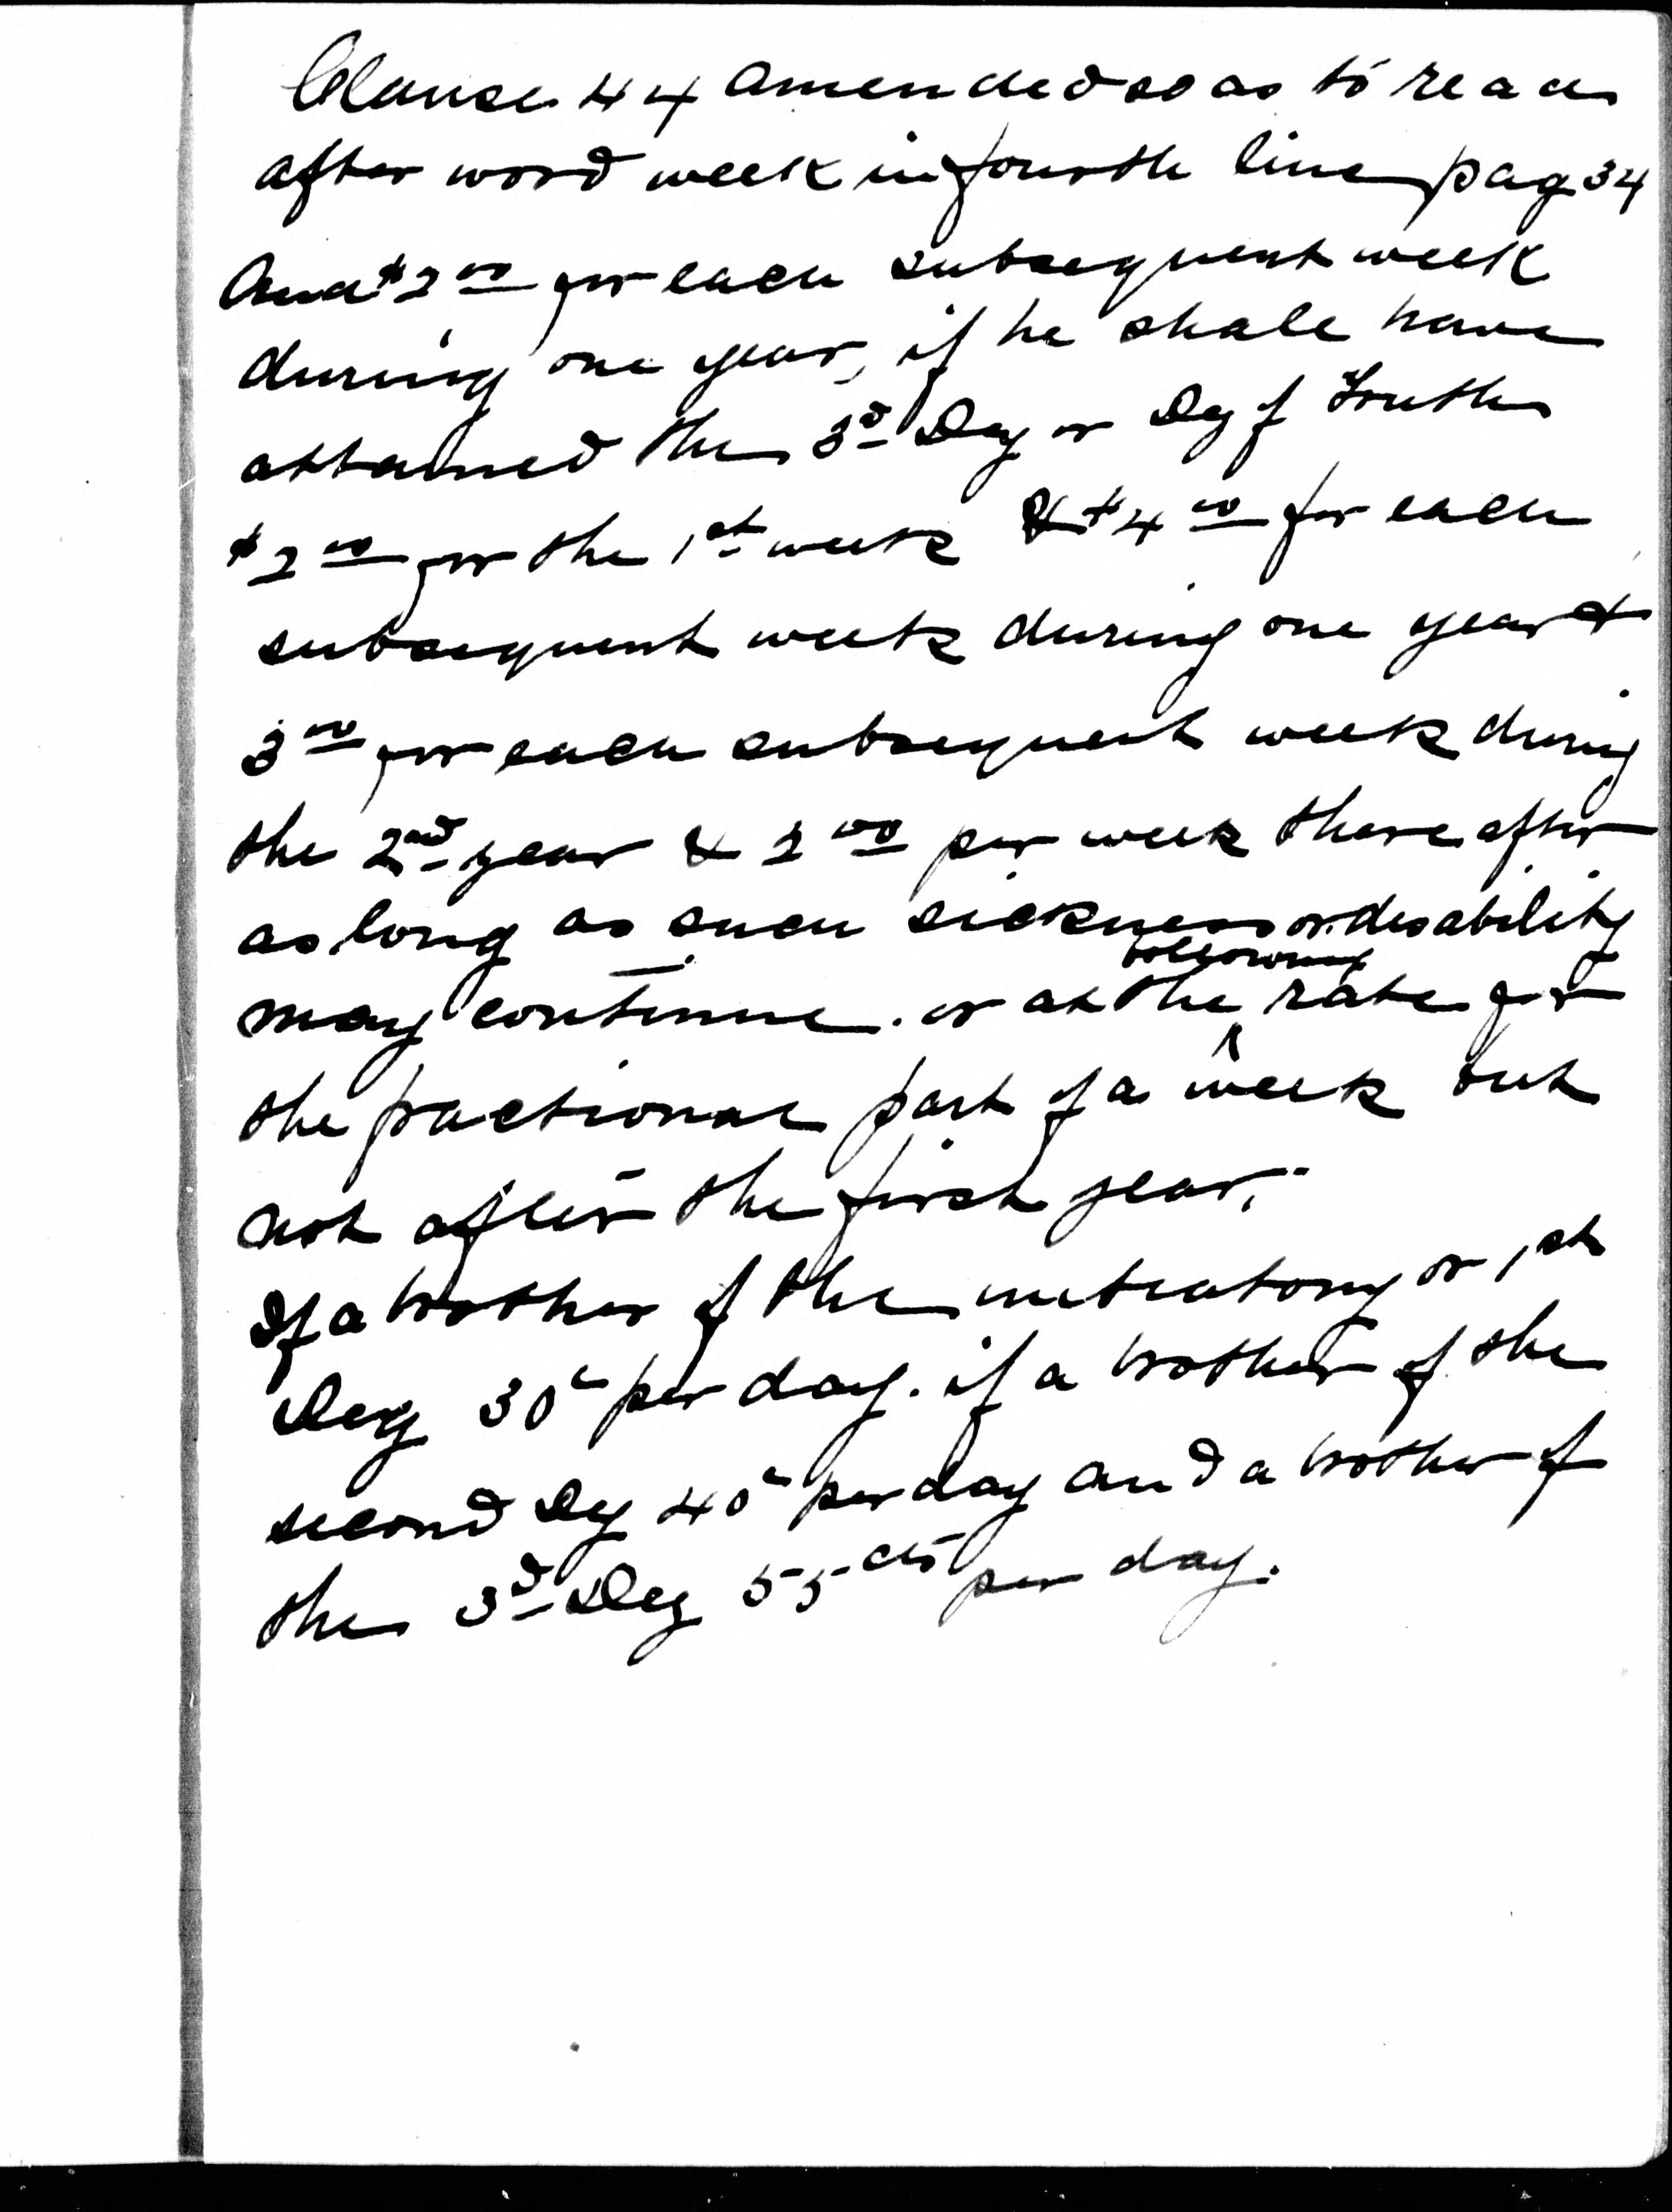 Clause 44 amended so as to read
after word week in fourth line pag 34
And $2 00 for each subsequent week
during one year, if he shall have
attained the 3d Deg or Deg of Truth
$2 00 for the 1st week & $4 00 for each
subsequent week during one year &
3 00 for each subsequent week during
the 2nd year & 2 00 per week there after
as long as such sickness or disability
may continue. or at the following rate for
the fractional part of a week but
not after the first year.
If a brother of the initiatory or 1st
Deg 30c per day. if a brother of the
second Deg 40c per day and a brother of
the 3d Deg 55 cts per day.